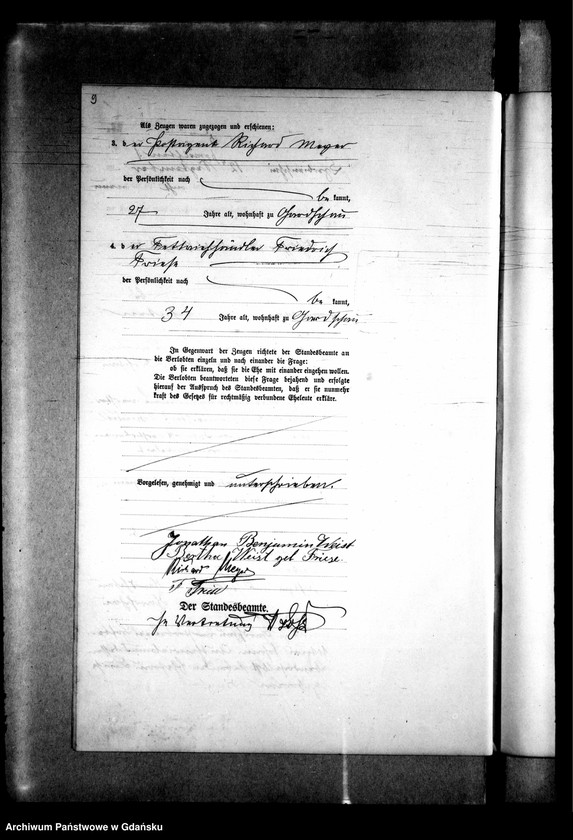 9
Als Zeugen waren zugezogen und erschienen:
3. der Postagent Richard Meyer
der Persönlichkeit nach
be kannt,
27 Jahre alt, wohnhaft zu Gardschau
4. der Fettviehhändler Friedrich
Friese
der Persönlichkeit nach
be kannt,
34 Jahre alt, wohnhaft zu Gardschau
In Gegenwart der Zeugen richtete der Standesbeamte an
die Verlobten einzeln und nach einander die Frage:
ob sie erklären, daß sie die Ehe mit einander eingehen wollen.
Die Verlobten beantworteten diese Frage bejahend und erfolgte
hierauf der Ausspruch des Standesbeamten, daß er sie nunmehr
kraft des Gesetzes für rechtmäßig verbundene Eheleute erkläre.
Vorgelesen, genehmigt und unterschrieben.
Jonathan Benjamin Weist
Bertha Weist geb Friese.
Richard Meyer
F Friese
Der Standesbeamte.
In Vertretung
Archiwum Państwowe w Gdańsku